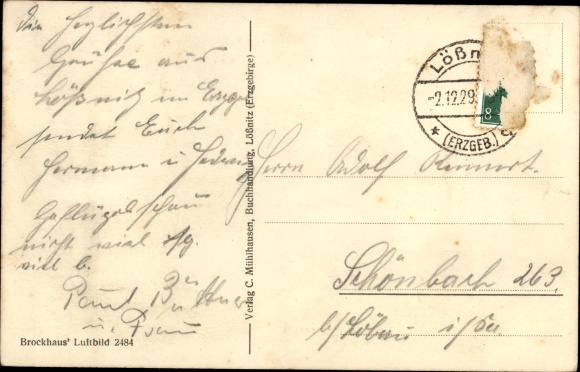 Die herzlichsten
Grüße aus
Lößnitz im Erzgeb
sendet Euch
Hermann u Hedwig
Geflügelschau
nicht viel
viel b.
Paul Büttner
u. Frau
Brockhaus' Luftbild 2484
Verlag C. Mühlhausen, Buchhandlung, Lößnitz (Erzgebirge)
Lößn
-2.12.29.
* (ERZGEB.)
8
Herrn Adolf
Schönbach 263.
b/Löbau i/Sa